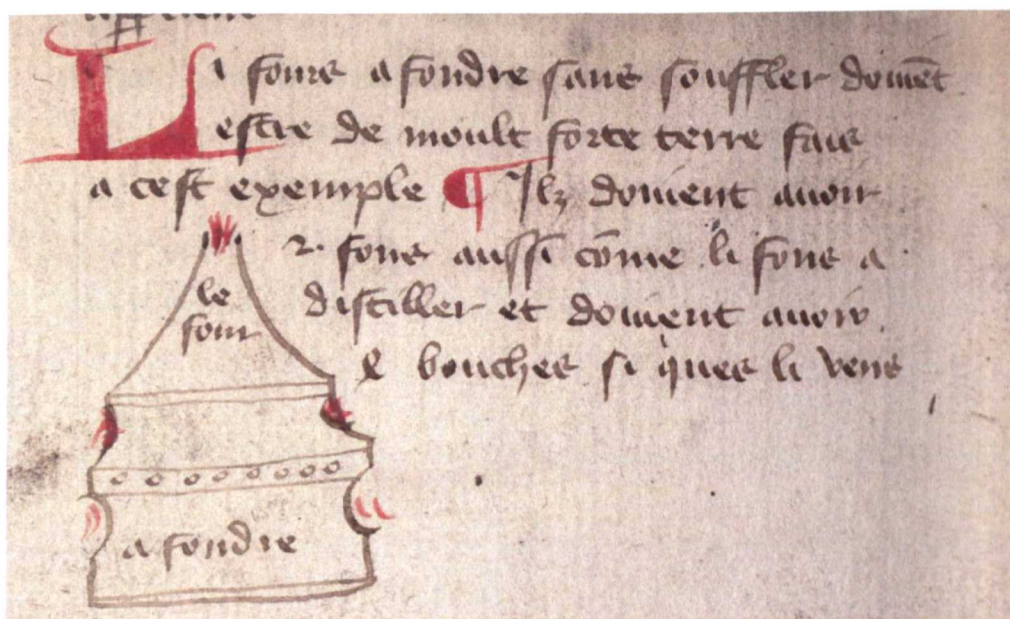 Li fours a fondre sans souffler doivēt
estre de moult forte terre fais
a cest exemple ¶ Ilz doivent avoir
2. fons aussi cōme li fons a
distiller et doivent avoir
& bouches si ques li vens
le
four
a fondre